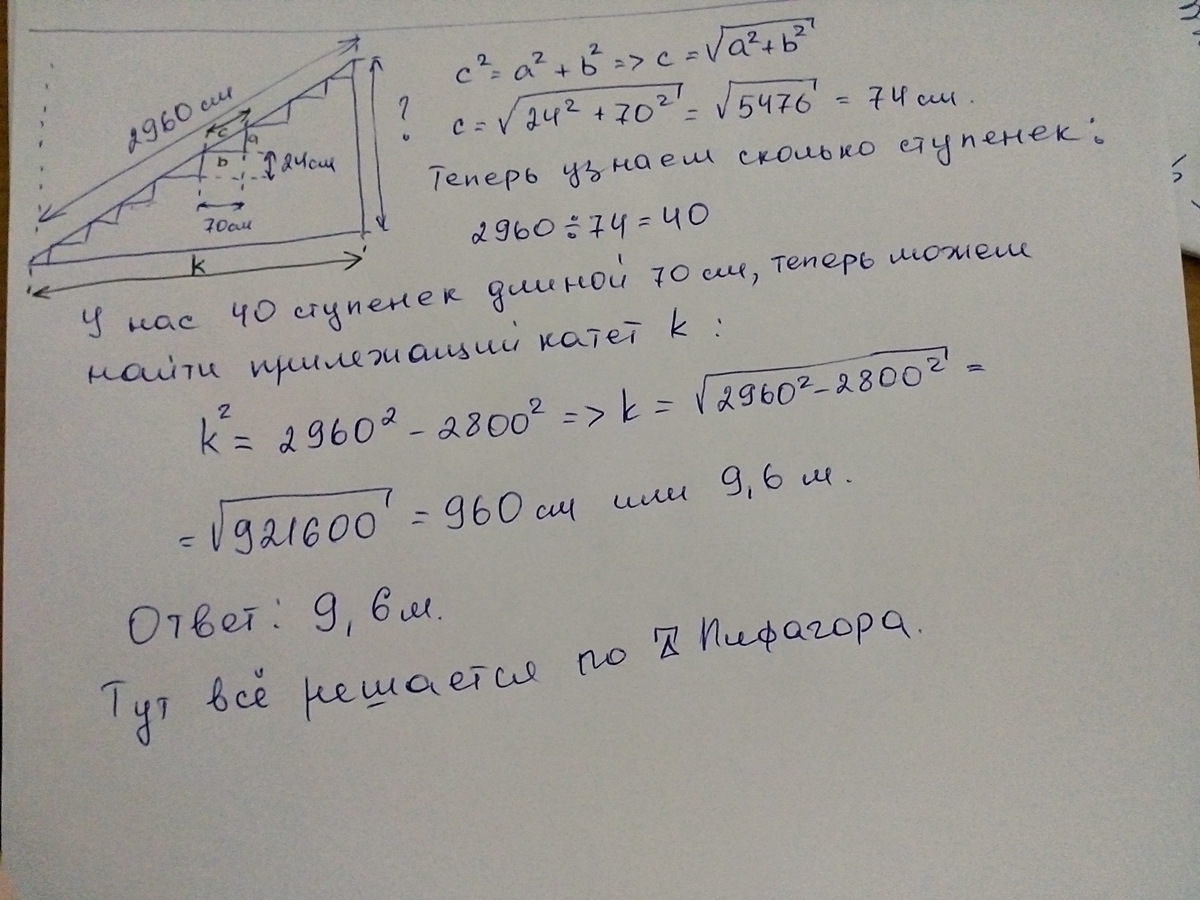 2960 см
c
a
b
24см
70см
k
?
c² = a² + b² => c = √a² + b²
c = √24² + 70² = √5476 = 74 см.
Теперь узнаем сколько ступенек:
2960 ÷ 74 = 40
У нас 40 ступенек длиной 70 см, теперь можем
найти прилежащий катет k :
k² = 2960² - 2800² => k = √2960² - 2800² =
= √921600 = 960 см или 9,6 м.
Ответ: 9,6 м.
Тут всё решается по Т Пифагора.